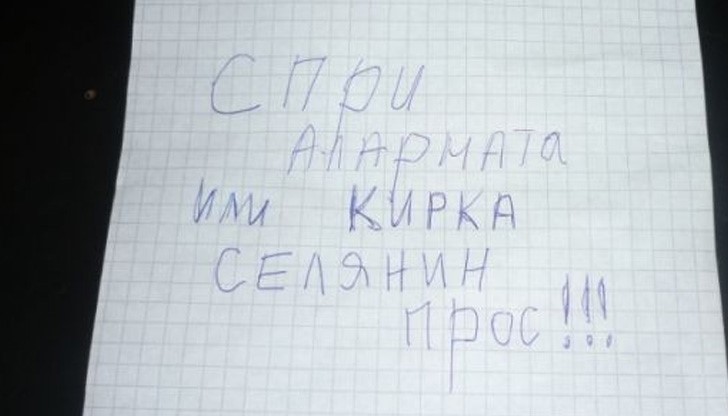 СПРИ
АЛАРМАТа
ИЛИ КИРКА
СЕЛЯНИН
ПРОС!!!